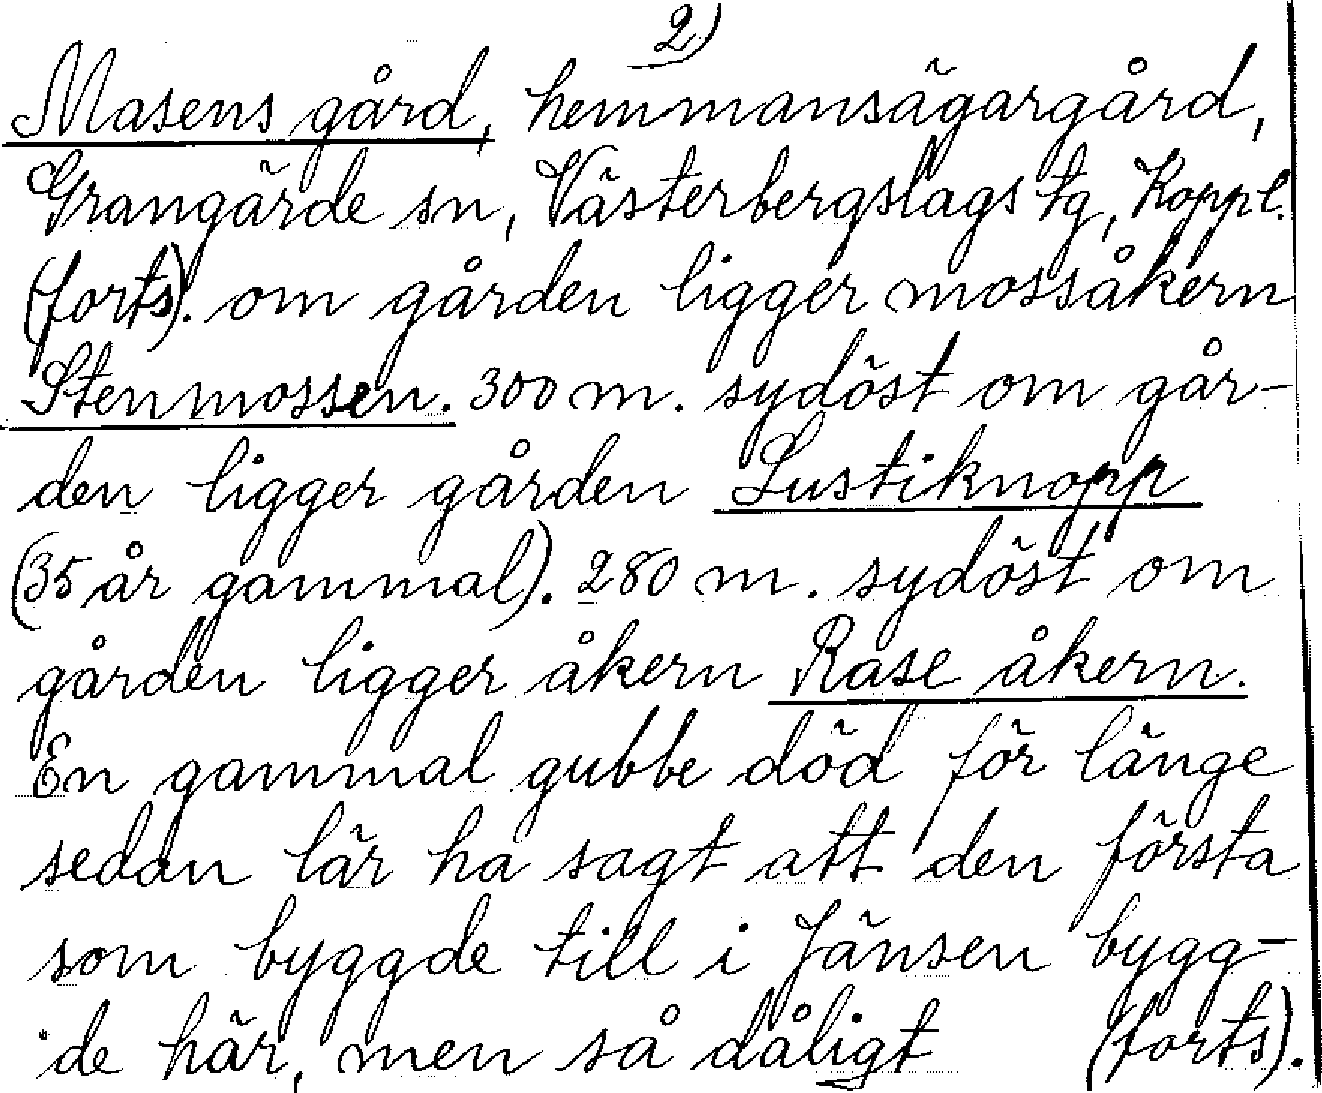 2)
Masens gård, hemmansägargård,
Grangärde sn, Västerbergslags tg, Koppl.
(forts). om gården ligger mossåkern
Stenmossen. 300 m. sydöst om går-
den ligger gården Lustiknopp
(35 år gammal). 280 m. sydöst om
gården ligger åkern Rase åkern.
En gammal gubbe död för länge
sedan lär ha sagt att den första
som byggde till i Jänsen bygg-
de här, men så dåligt (forts).